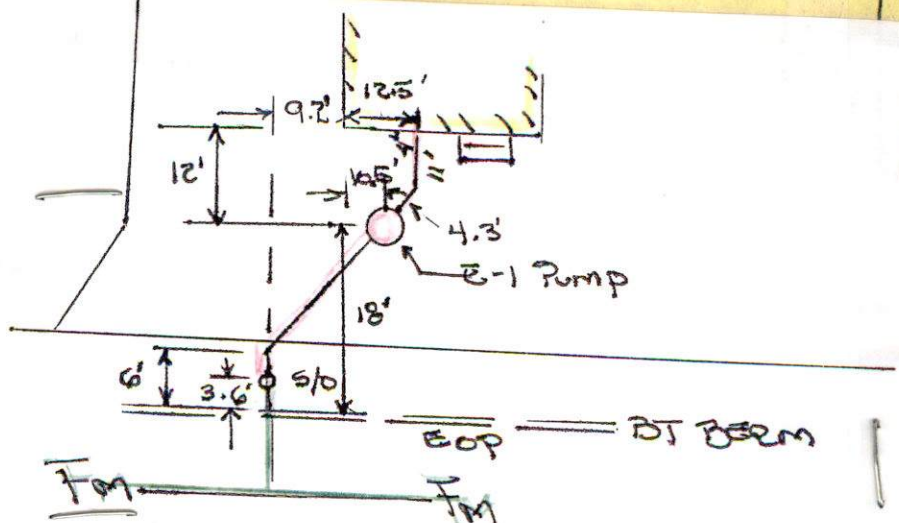 12.5'
9.2'
12'
10.5'
11'
4.3'
E-1 Pump
18'
6'
3.6' S/O
EOP BT BERM
Fm Fm